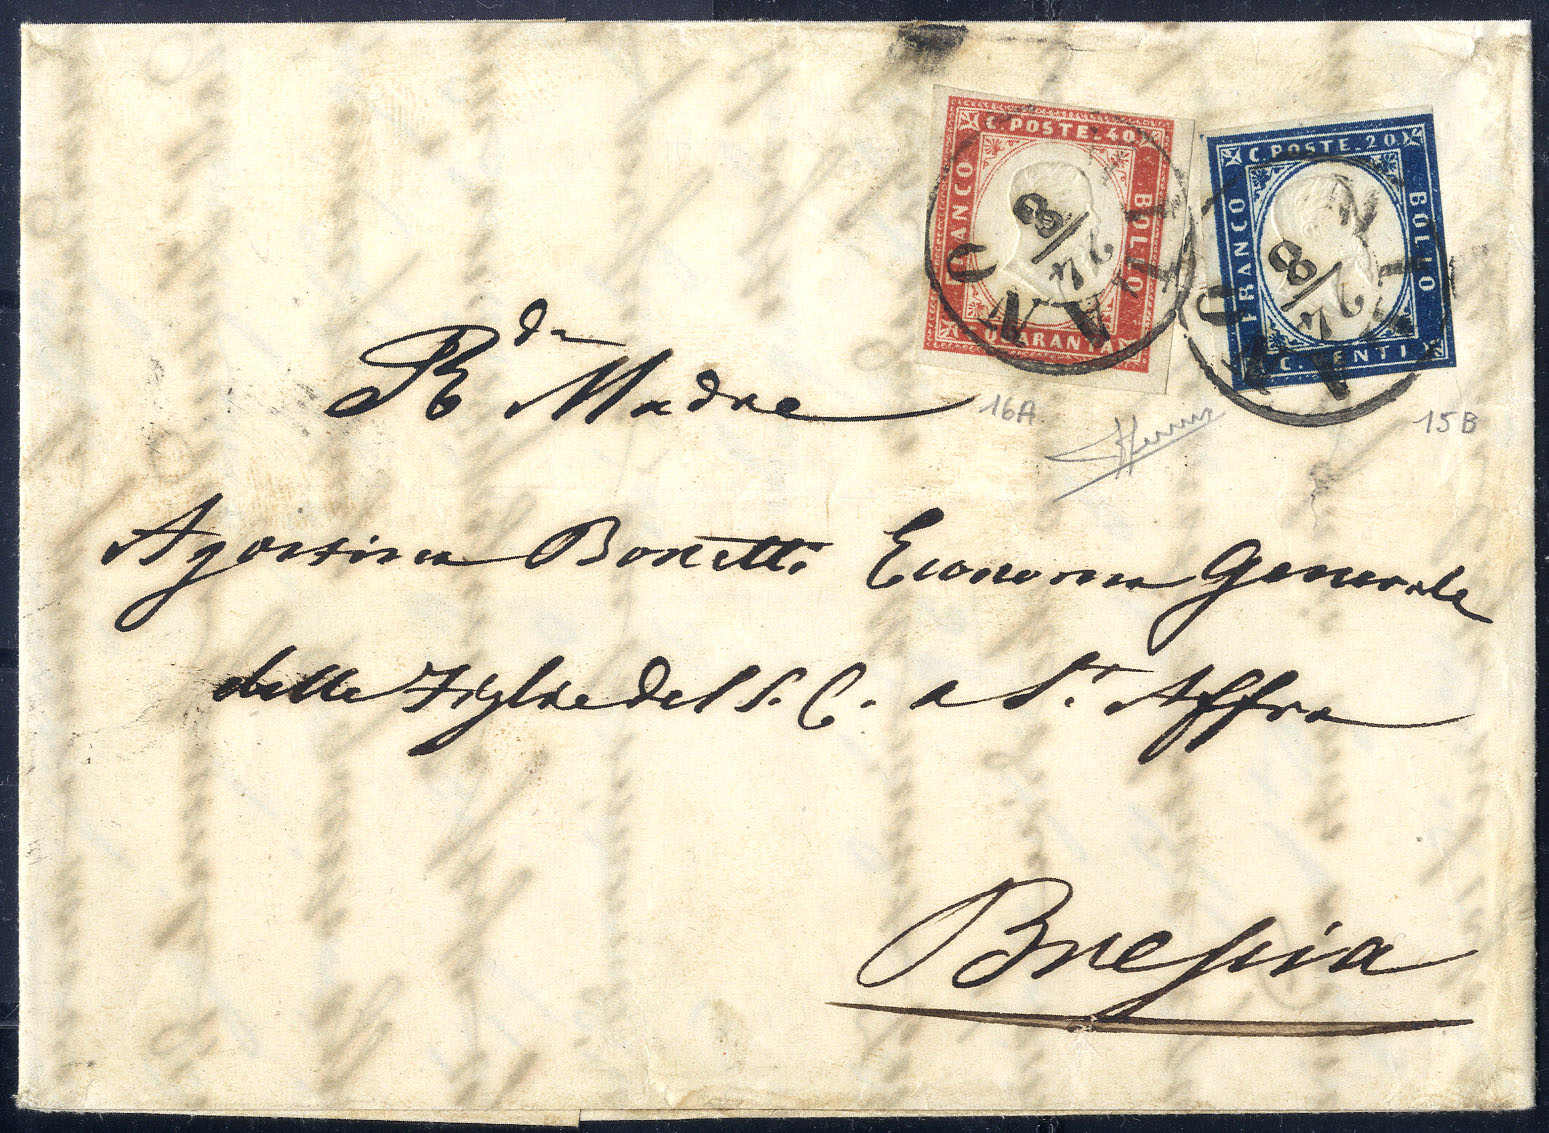 C. POSTE. 40
FRANCO
BOLLO
QUARANTA
C. POSTE. 20
FRANCO
BOLLO
C. VENTI
24/8
24/8
16A
15B
R.da Madre
Agostina Bonetti Economa Generale
delle Figlie del S. C. a St. Affra
Brescia